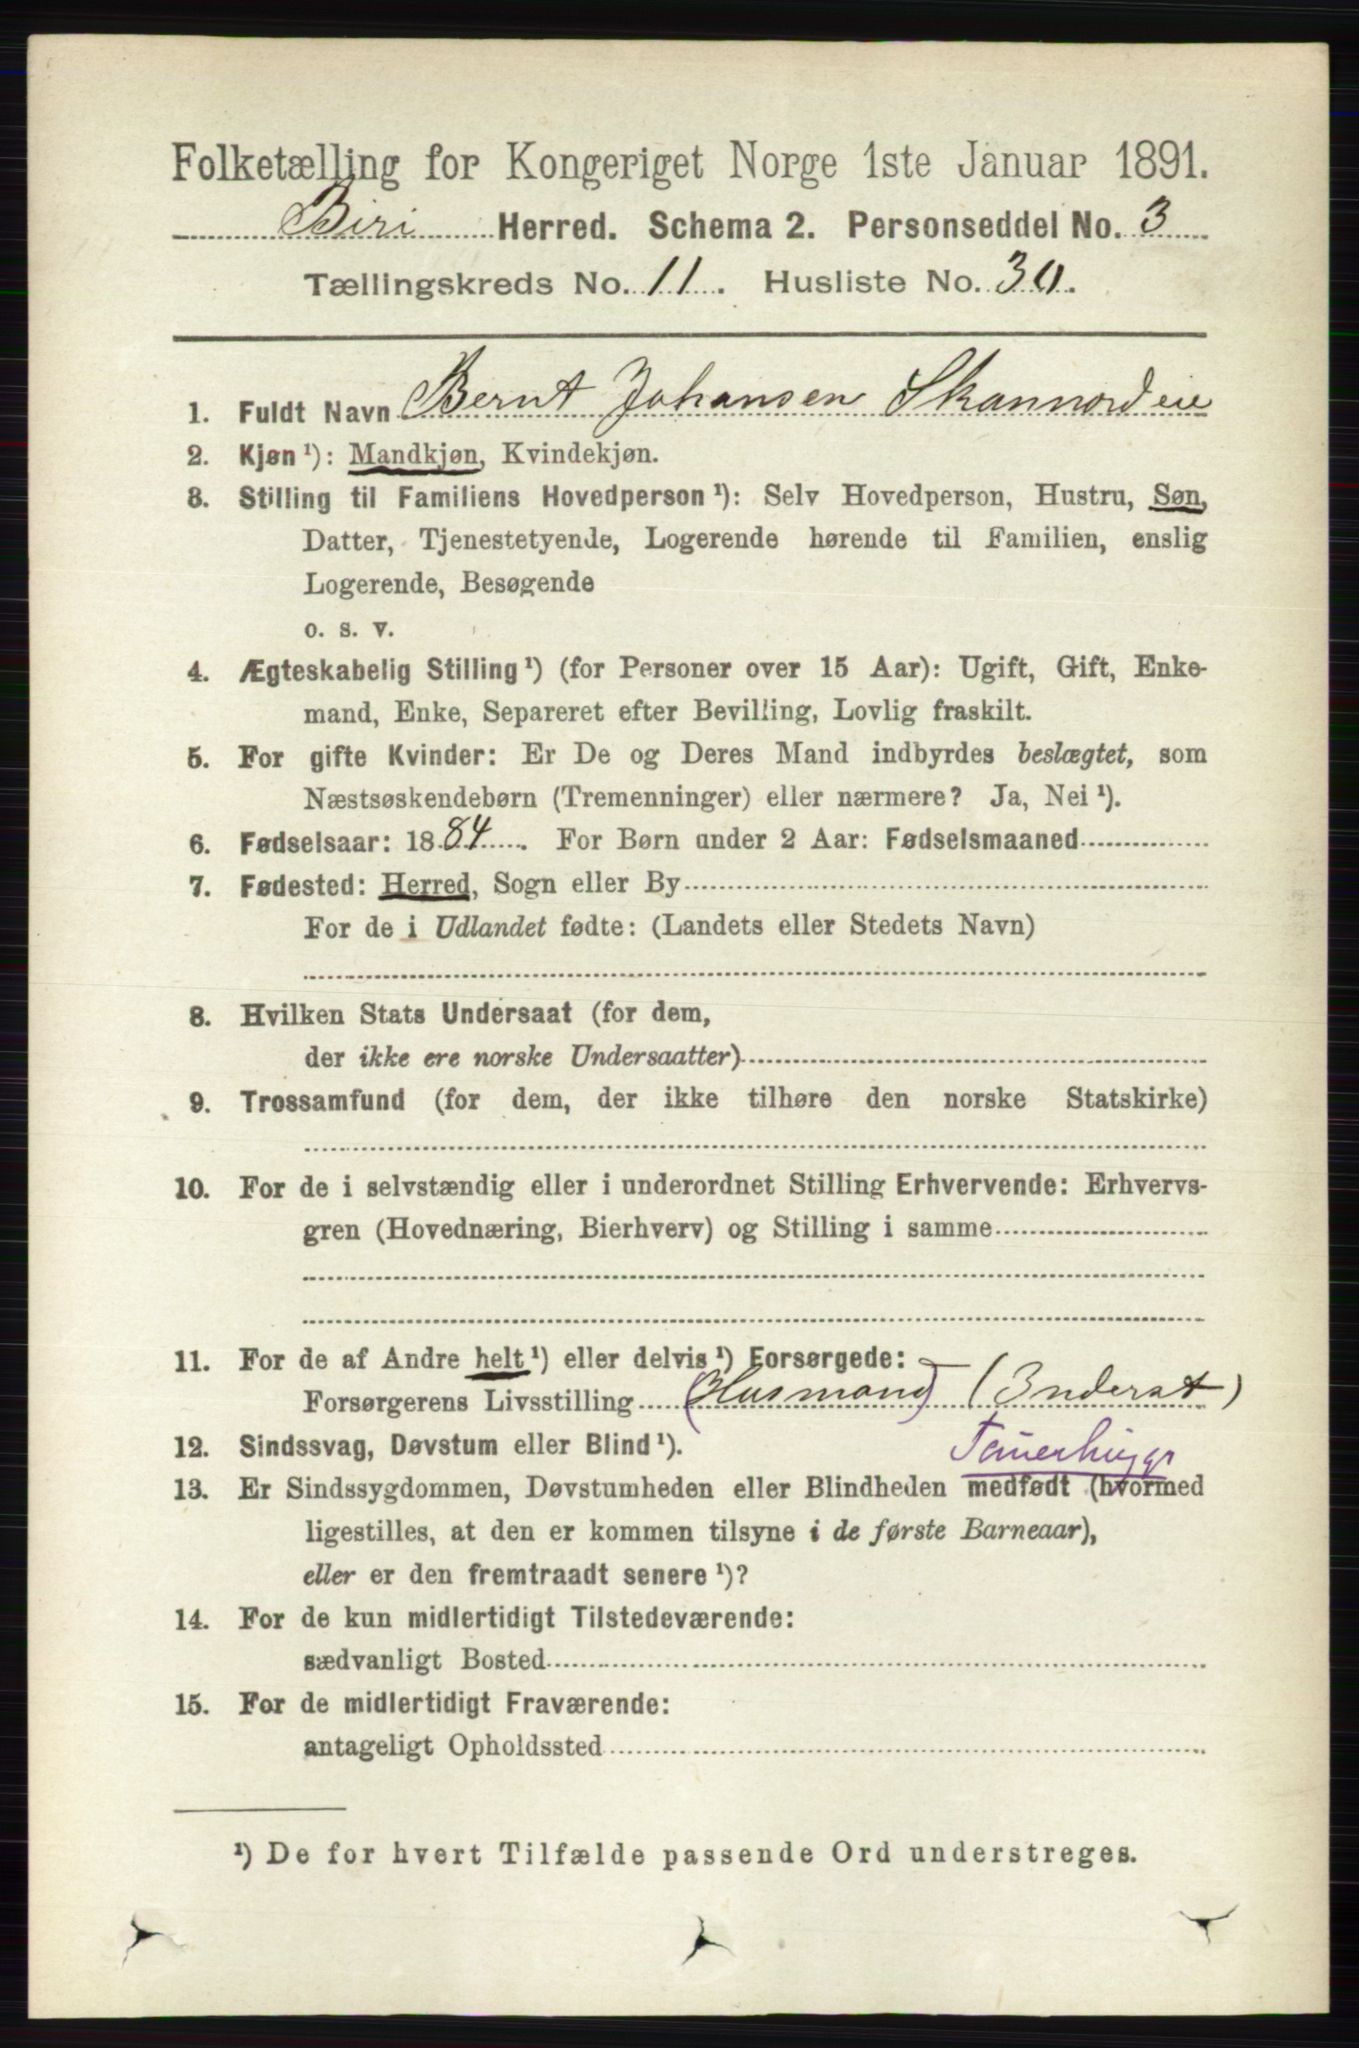 Folketælling for Kongeriget Norge 1ste Januar 1891.
Biri Herred. Schema 2. Personseddel No. 3
Tællingskreds No. 11. Husliste No. 30.
1. Fuldt Navn Bernt Johansen Skannordeie
2. Kjøn ¹): Mandkjøn, Kvindekjøn.
3. Stilling til Familiens Hovedperson ¹): Selv Hovedperson, Hustru, Søn,
Datter, Tjenestetyende, Logerende hørende til Familien, enslig
Logerende, Besøgende
o. s. v.
4. Ægteskabelig Stilling ¹) (for Personer over 15 Aar): Ugift, Gift, Enke-
mand, Enke, Separeret efter Bevilling, Lovlig fraskilt.
5. For gifte Kvinder: Er De og Deres Mand indbyrdes beslægtet, som
Næstsøskendebørn (Tremenninger) eller nærmere? Ja, Nei ¹).
6. Fødselsaar: 1884. For Børn under 2 Aar: Fødselsmaaned
7. Fødested: Herred, Sogn eller By
For de i Udlandet fødte: (Landets eller Stedets Navn)
8. Hvilken Stats Undersaat (for dem,
der ikke ere norske Undersaatter)
9. Trossamfund (for dem, der ikke tilhøre den norske Statskirke)
10. For de i selvstændig eller i underordnet Stilling Erhvervende: Erhvervs-
gren (Hovednæring, Bierhverv) og Stilling i samme
11. For de af Andre helt ¹) eller delvis ¹) Forsørgede:
Forsørgerens Livsstilling (Husmand) (Inderst)
12. Sindssvag, Døvstum eller Blind ¹). Tømerhugger
13. Er Sindssygdommen, Døvstumheden eller Blindheden medfødt (hvormed
ligestilles, at den er kommen tilsyne i de første Barneaar),
eller er den fremtraadt senere ¹)?
14. For de kun midlertidigt Tilstedeværende:
sædvanligt Bosted
15. For de midlertidigt Fraværende:
antageligt Opholdssted
¹) De for hvert Tilfælde passende Ord understreges.